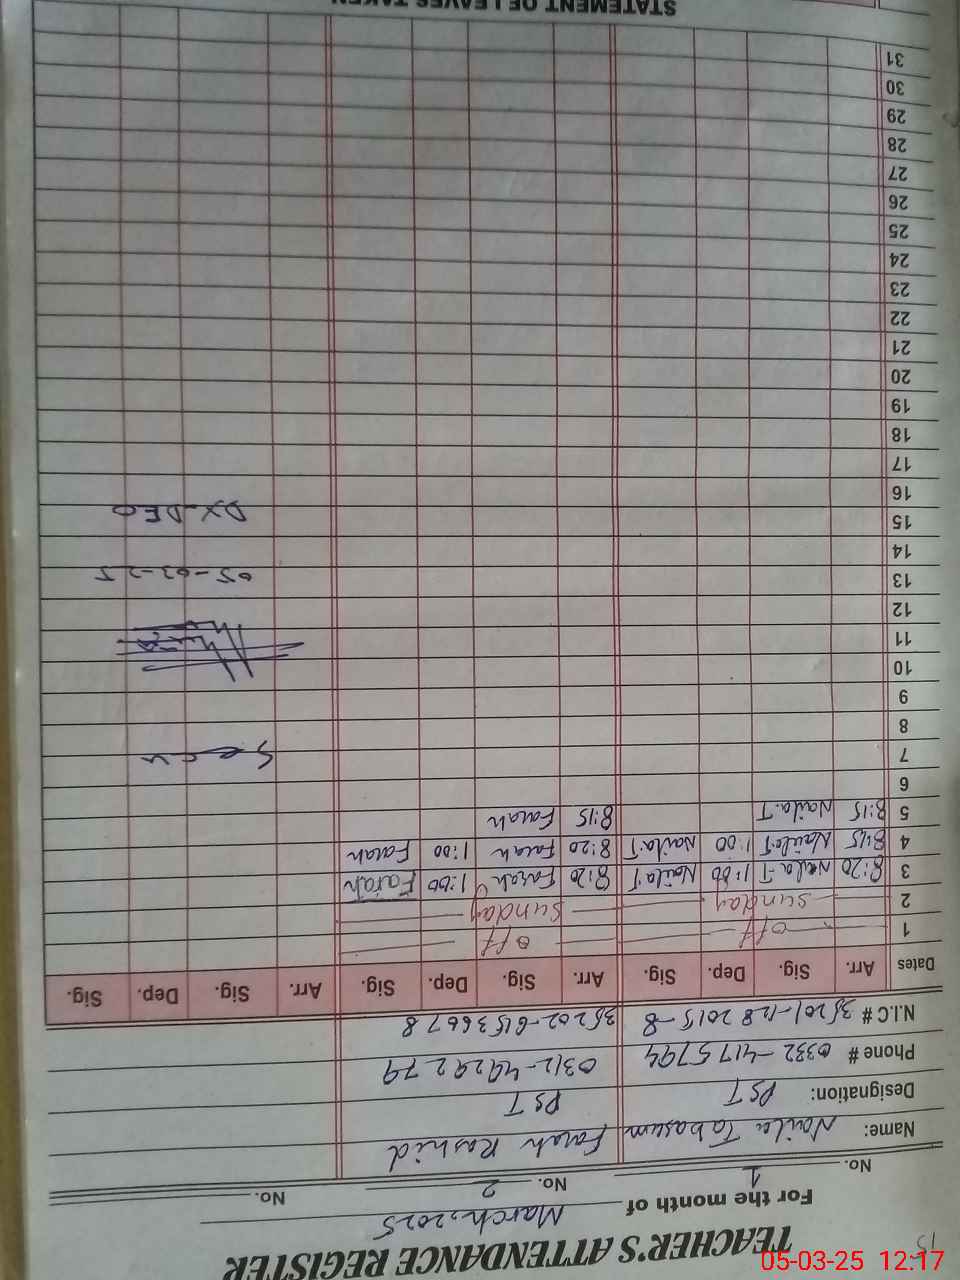 15
TEACHER'S ATTENDANCE REGISTER
For the month of March, 2025
No. 1 No. 2 No.
Name: Naila Tabasum Farah Rashid
Designation: PST PST
Phone # 0332-4175794 0312-4929279
N.I.C # 35201-1282015-8 35202-6153667 8
Dates Arr. Sig. Dep. Sig. Arr. Sig. Dep. Sig. Arr. Sig. Dep. Sig.
1 off off
2 Sunday Sunday
3 8:20 Naila.T 1:00 Naila.T 8:20 Farah 1:00 Farah
4 8:15 Naila.T 1:00 Naila.T 8:20 Farah 1:00 Farah
5 8:15 Naila.T 8:15 Farah
6
7 Seen
8
9
10
11
12
13 05-03-25
14
15 DX-DEO
16
17
18
19
20
21
22
23
24
25
26
27
28
29
30
31
STATEMENT OF LEAVES TAKEN
05-03-25 12:17